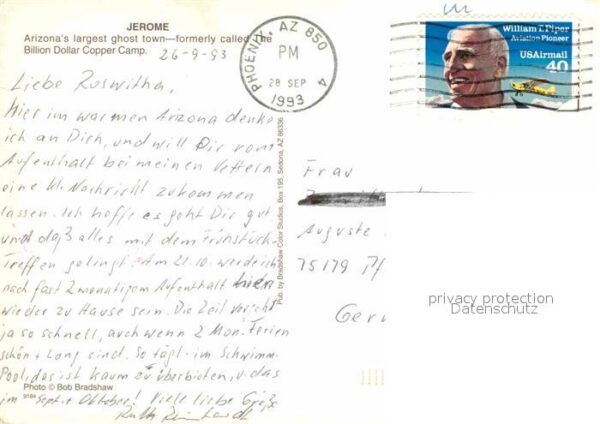 JEROME
Arizona's largest ghost town—formerly called The
Billion Dollar Copper Camp.
26-9-93
Liebe Roswitha,
hier im warmen Arizona denke
ich an Dich, und will Dir vom
Aufenthalt bei meinen Vettern
eine kl. Nachricht zukommen
lassen. Ich hoffe es geht Dir gut
und daß alles mit dem Frühstück-
Treffen gelingt. Am 21.10. werde ich
nach fast 2 monatigem Aufenthalt
wieder zu Hause sein. Die Zeit vergeht
ja so schnell, auch wenn 2 Mon. Ferien
schön + lang sind. So tägl. im Schwimm-
Pool, das ist kaum zu überbieten, u. das
im Sept. + Oktober! Viele liebe Grüße
Ruth Reinhardt
Photo © Bob Bradshaw
9184
Pub by Bradshaw Color Studios, Box 195, Sedona, AZ 86336
PHOENIX, AZ 850
PM
28 SEP
1993
4
William T. Piper
Aviation Pioneer
USAirmail
40
Frau
Auguste
75179 Pf
Ger
privacy protection
Datenschutz